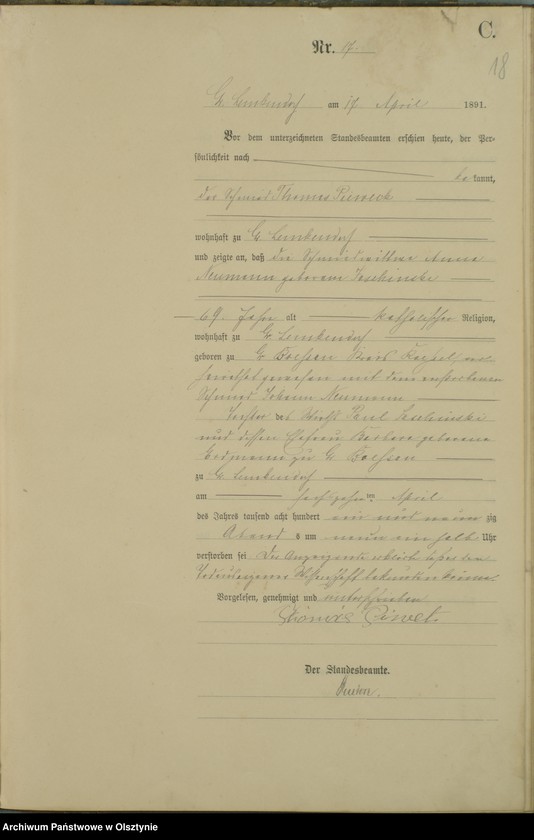 C.
18
Nr. 17.
Gr. Lemkendorf am 17 April 1891.
Vor dem unterzeichneten Standesbeamten erschien heute, der Per-
sönlichkeit nach
be kannt,
der Schmied Thomas Pieweck
wohnhaft zu Gr. Lemkendorf
und zeigte an, daß die Schmiedwittwe Anna
Neumann geborene
69 Jahre alt katholischer Religion,
wohnhaft zu Gr. Lemkendorf
geboren zu Gr. Boessau Kreis Roessel, ver-
heirathet gewesen mit dem verstorbenen
Schmied Johann Neumann
Tochter des
und dessen Ehefrau Barbara geborene
Erdmann zu Gr. Boessau
zu Gr. Lemkendorf
am sechszehn ten April
des Jahres tausend acht hundert ein und neun zig
Abend s um neun ein halb Uhr
verstorben sei Der Anzeigende erklärt daß er den
Vorgelesen, genehmigt und unterschrieben
Der Standesbeamte.
Archiwum Państwowe w Olsztynie